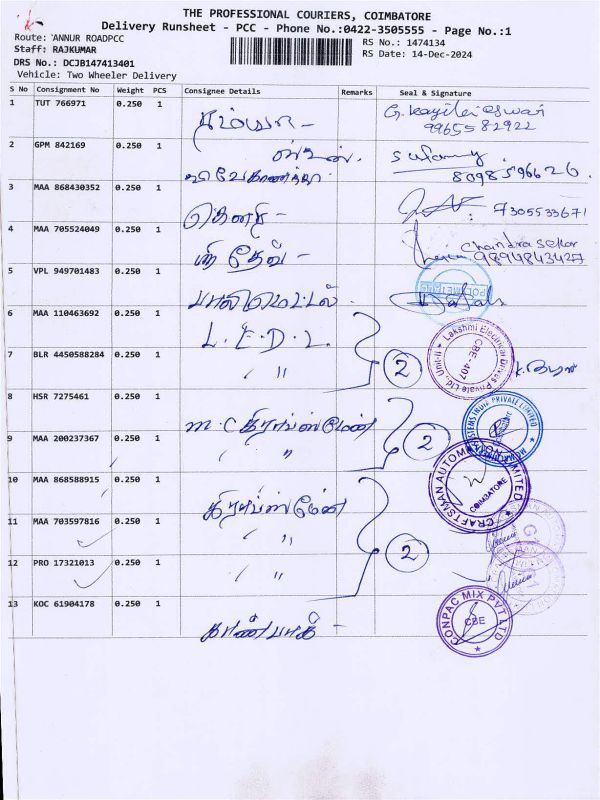 THE PROFESSIONAL COURIERS, COIMBATORE
Delivery Runsheet - PCC - Phone No.:0422-3505555 - Page No.:1
Route: ANNUR ROADPCC
RS No.: 1474134
Staff: RAJKUMAR
RS Date: 14-Dec-2024
DRS No.: DCJB147413401
Vehicle: Two Wheeler Delivery
S No Consignment No Weight PCS Consignee Details Remarks Seal & Signature
1 TUT 766971 0.250 1
9965582922
2 GPM 842169 0.250 1
3 MAA 868430352 0.250 1
7305533671
4 MAA 705524049 0.250 1 ஸ்ரீ தேவ் - Chandra Sekar
9894843427
5 VPL 949701483 0.250 1 பாலிமெட்டல்
6 MAA 110463692 0.250 1 L.E.D.L. Lakshmi Electrical Drives Private Ltd. Unit-II CBE - 407
7 BLR 4450588284 0.250 1 " 2
8 HSR 7275461 0.250 1 PRIVATE LIMITED
9 MAA 200237367 0.250 1 " 2
10 MAA 868588915 0.250 1 CRAFTSMAN AUTOMATION LIMITED COIMBATORE
11 MAA 703597816 0.250 1 "
12 PRO 17321013 0.250 1 " 2
13 KOC 61904178 0.250 1 காண்பாக் - CONPAC MIX PVT LTD CBE